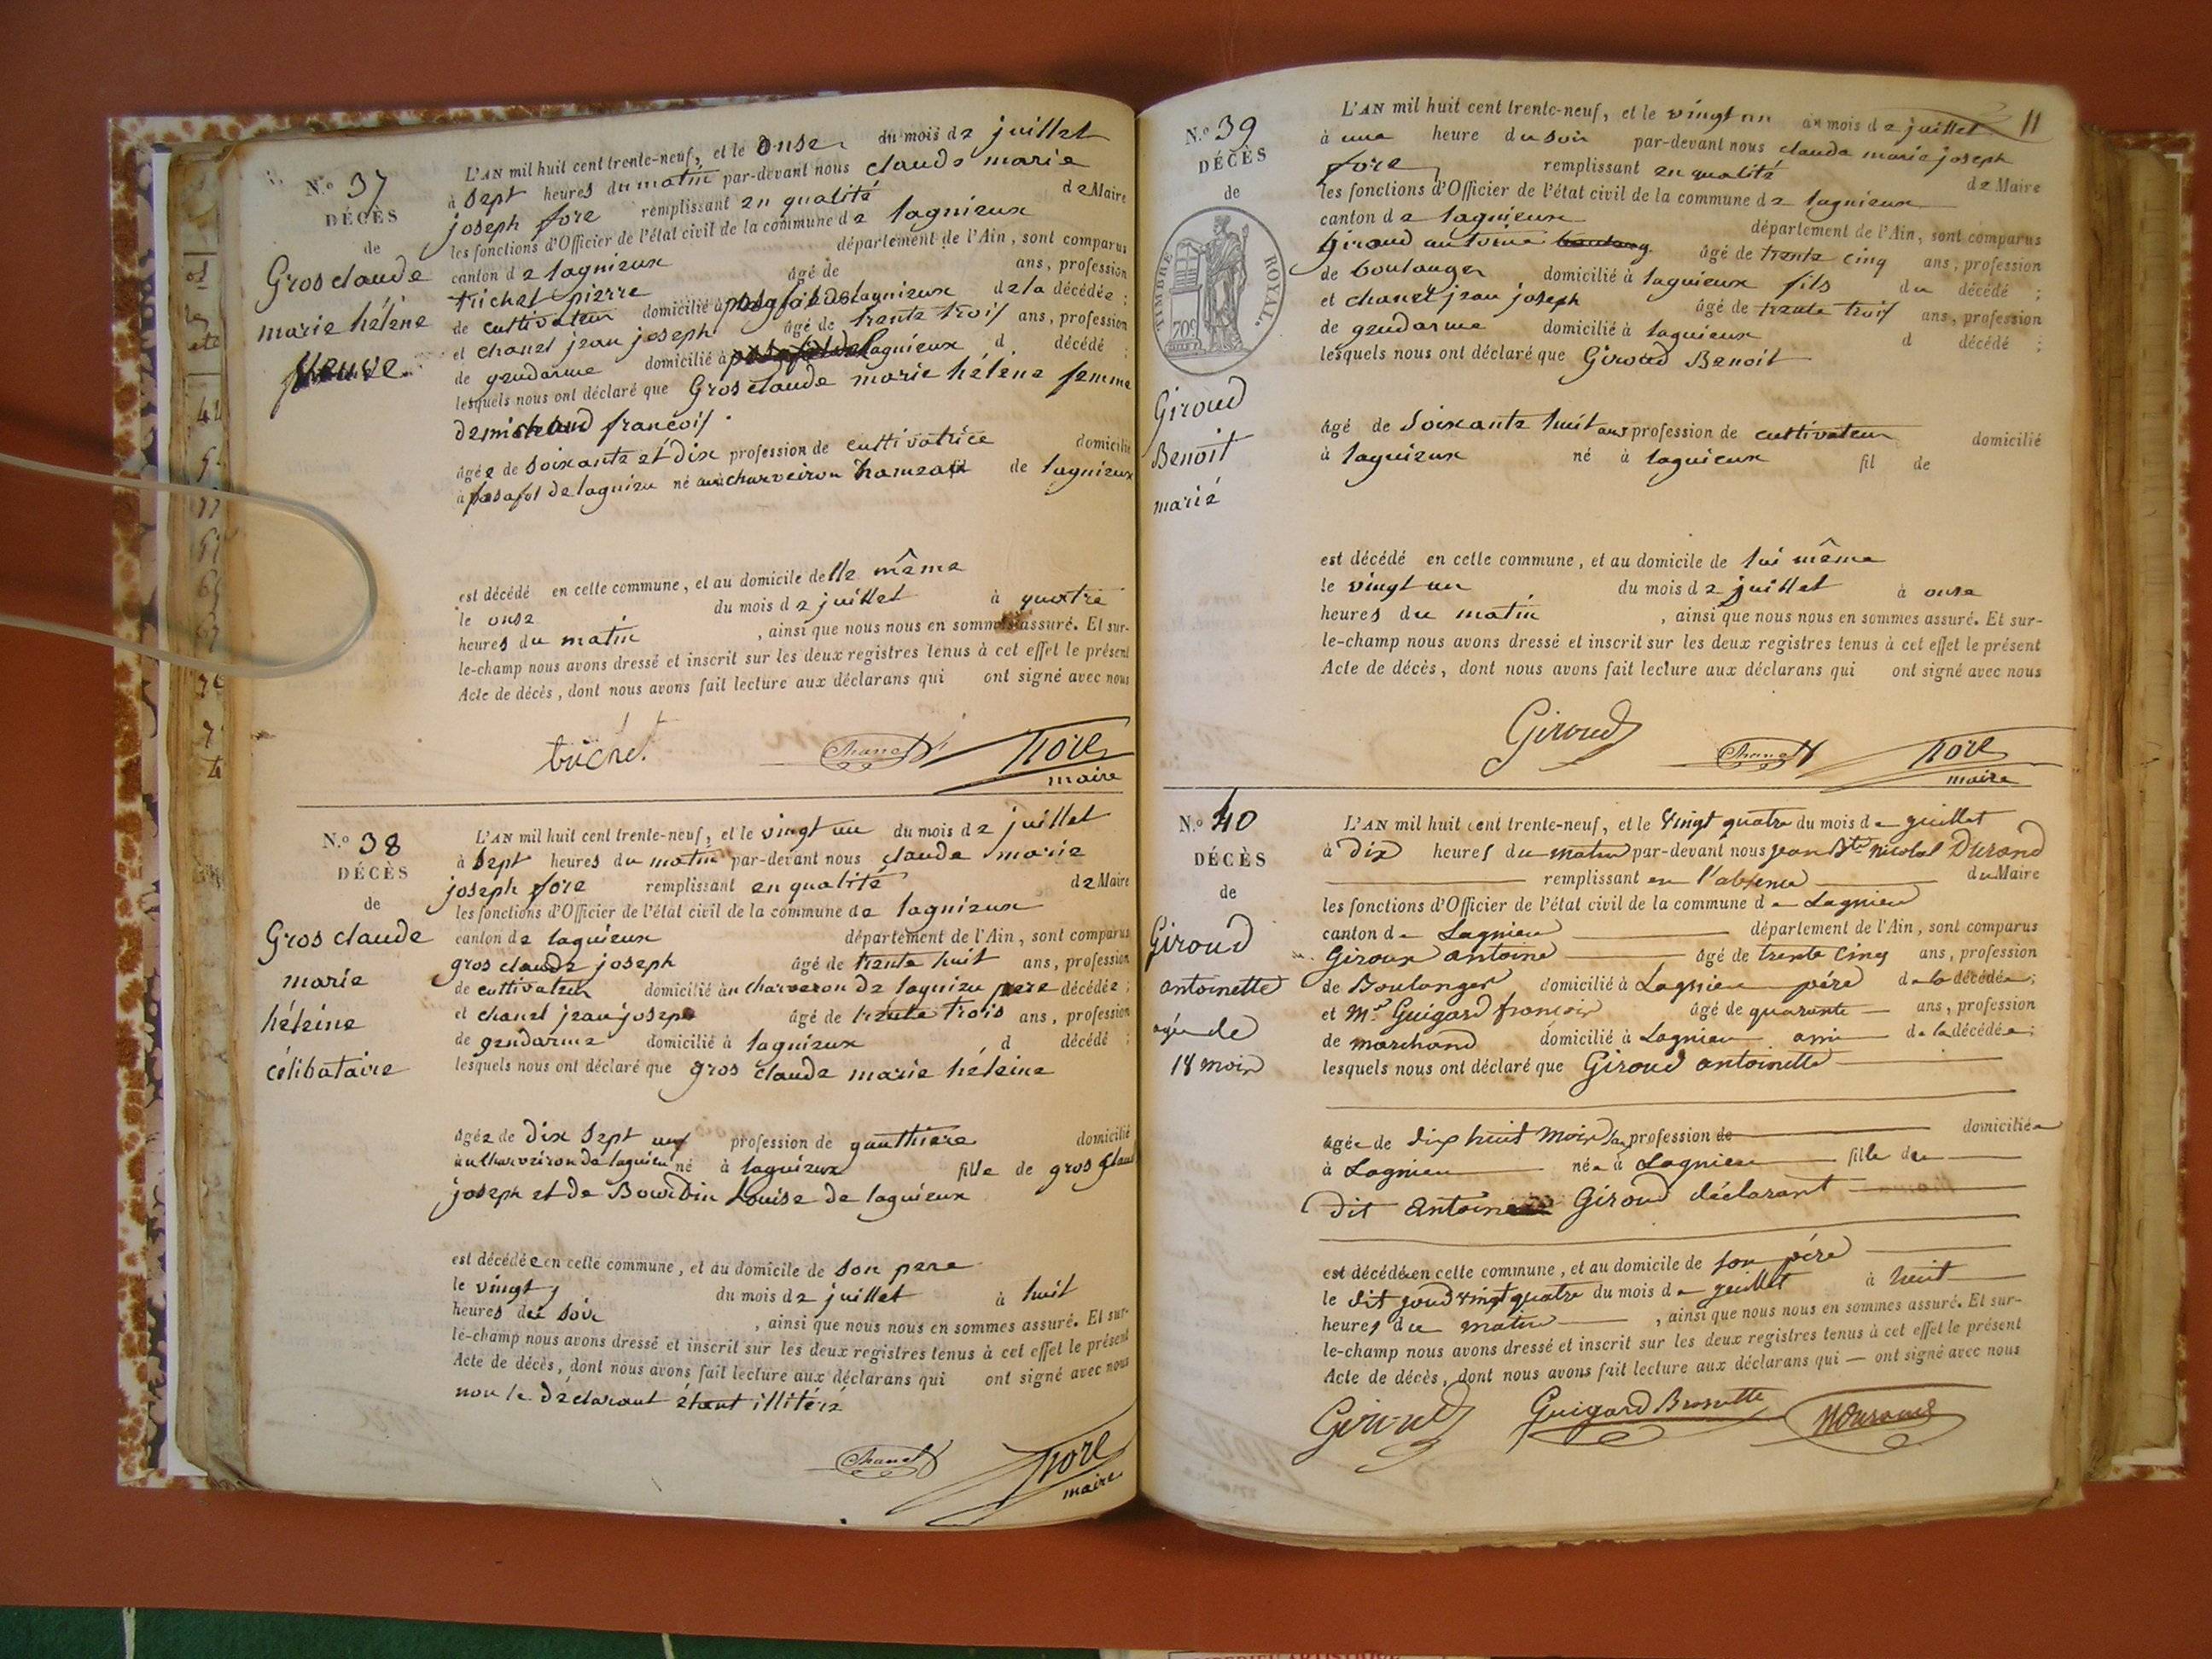 N.o 37
DÉCÈS
de
Gros claude
marie hélène
veuve
L'AN mil huit cent trente-neuf, et le onse du mois de juillet
à sept heures du matin par-devant nous claude marie
joseph fore remplissant en qualité de Maire
les fonctions d'Officier de l'état civil de la commune de lagnieux
canton de lagnieux département de l'Ain, sont comparus
trichet pierre âgé de ans, profession
de cultivateur domicilié à posafol de lagnieux de la décédée ;
et chanel jean joseph âgé de trente trois ans, profession
de gendarme domicilié à lagnieux d décédé ;
lesquels nous ont déclaré que Gros claude marie hélène femme
de michaud francois
âgée de soixante et dix profession de cultivatrice domicilié
à posafol de lagnieu né charveiron hameau de lagnieux
est décédé en cette commune, et au domicile delle même
le onse du mois de juillet à quatre
heures du matin , ainsi que nous nous en sommes assuré. Et sur-
le-champ nous avons dressé et inscrit sur les deux registres tenus à cet effet le présent
Acte de décès, dont nous avons fait lecture aux déclarans qui ont signé avec nous
trichet Chanel fore
maire
N.o 38
DÉCÈS
de
Gros claude
marie
héleine
célibataire
L'AN mil huit cent trente-neuf, et le vingt un du mois de juillet
à sept heures du matin par-devant nous claude marie
joseph fore remplissant en qualité de Maire
les fonctions d'Officier de l'état civil de la commune de lagnieux
canton de lagnieux département de l'Ain, sont comparus
gros claude joseph âgé de trente huit ans, profession
de cultivateur domicilié au charveron de lagnieu pere décédée ;
et chanel jean joseph âgé de trente trois ans, profession
de gendarme domicilié à lagnieux d décédé ;
lesquels nous ont déclaré que gros claude marie héleine
âgée de dix sept ans profession de ganthière domicilié
au charveiron de lagnieu né à lagnieux fille de gros claude
joseph et de Bourdin Louise de lagnieux
est décédée en cette commune, et au domicile de son pere
le vingt du mois de juillet à huit
heures du soir , ainsi que nous nous en sommes assuré. Et sur-
le-champ nous avons dressé et inscrit sur les deux registres tenus à cet effet le présent
Acte de décès, dont nous avons fait lecture aux déclarans qui ont signé avec nous
non le déclarant étant illitéré
Chanel fore
maire
11
N.o 39
DÉCÈS
de
TIMBRE ROYAL.
70c
Giroud
Benoit
marié
L'AN mil huit cent trente-neuf, et le vingt un du mois de juillet
à une heure du soir par-devant nous claude marie joseph
fore remplissant en qualité de Maire
les fonctions d'Officier de l'état civil de la commune de lagnieux
canton de lagnieux département de l'Ain, sont comparus
Giroud antoine âgé de trente cinq ans, profession
de boulanger domicilié à lagnieux fils du décédé ;
et chanel jean joseph âgé de trente trois ans, profession
de gendarme domicilié à lagnieux d décédé ;
lesquels nous ont déclaré que Giroud Benoit
âgé de soixante huit ans profession de cultivateur domicilié
à lagnieux né à lagnieux fil de
est décédé en cette commune, et au domicile de lui même
le vingt un du mois de juillet à onse
heures du matin , ainsi que nous nous en sommes assuré. Et sur-
le-champ nous avons dressé et inscrit sur les deux registres tenus à cet effet le présent
Acte de décès, dont nous avons fait lecture aux déclarans qui ont signé avec nous
Giroud Chanel fore
maire
N.o 40
DÉCÈS
de
Giroud
antoinette
agée de
18 mois
L'AN mil huit cent trente-neuf, et le vingt quatre du mois de juillet
à dix heures du matin par-devant nous jean Bte nicolas Durand
remplissant en l'absence du Maire
les fonctions d'Officier de l'état civil de la commune de Lagnieu
canton de Lagnieu département de l'Ain, sont comparus
Giroux antoine âgé de trente cinq ans, profession
de Boulanger domicilié à Lagnieu père de la décédée ;
et Mr Guigard francois âgé de quarante ans, profession
de marchand domicilié à Lagnieu ami de la décédée ;
lesquels nous ont déclaré que Giroud antoinette
âgée de dix huit mois profession de domiciliée
à Lagnieu née à Lagnieu fille du
dit Antoine Giroud déclarant
est décédée en cette commune, et au domicile de son père
le dit jour vingt quatre du mois de juillet à huit
heures du matin , ainsi que nous nous en sommes assuré. Et sur-
le-champ nous avons dressé et inscrit sur les deux registres tenus à cet effet le présent
Acte de décès, dont nous avons fait lecture aux déclarans qui ont signé avec nous
Giroud Guigard Brossette NDurand